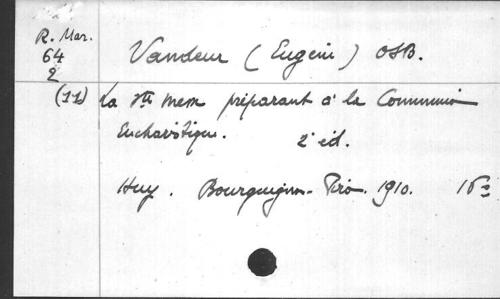 R. Mar.
64
2
Vandeur (Eugène) OSB.
(11) La Ste Messe préparant à la Communion
Eucharistique. 2e éd.
Huy. Bourguignon-Piro. 1910. 16°